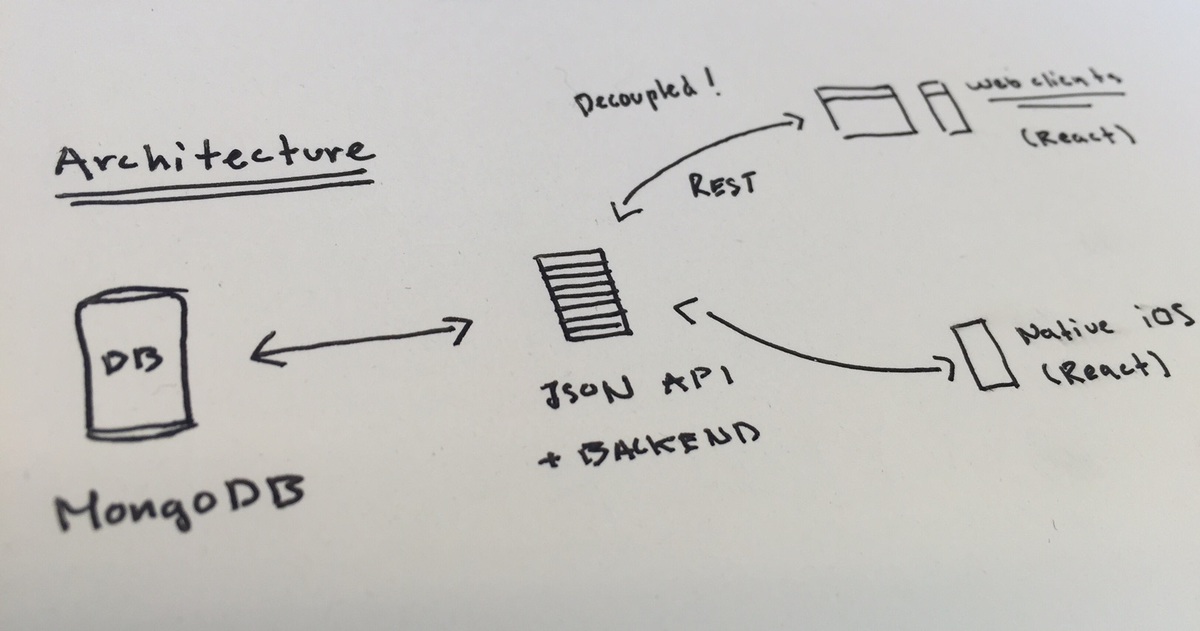 Architecture
DB
MongoDB
JSON API
+ BACKEND
Decoupled!
REST
web clients
(React)
Native iOS
(React)